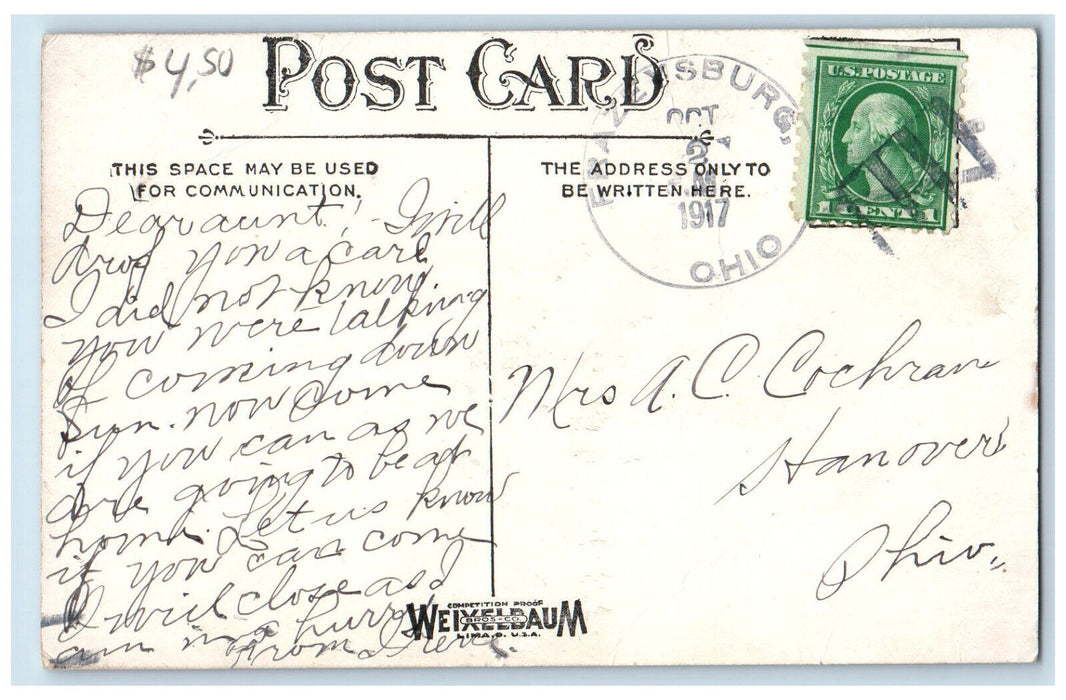 $4,50
POST CARD
THIS SPACE MAY BE USED
FOR COMMUNICATION.
THE ADDRESS ONLY TO
BE WRITTEN HERE.
OCT
2
1917
OHIO
U.S. POSTAGE
1 CENT 1
Dear aunt! I will
drop you a card
I did not know
you were talking
of coming down
Sun. now come
if you can as we
are going to be at
home. Let us know
if you can come
I will close as I
am in a hurry
From Irene.
Mrs A. C. Cochran
Hanover
Ohio,,
COMPETITION PROOF
WEIXELBAUM
BROS. CO.
LIMA, O. U.S.A.